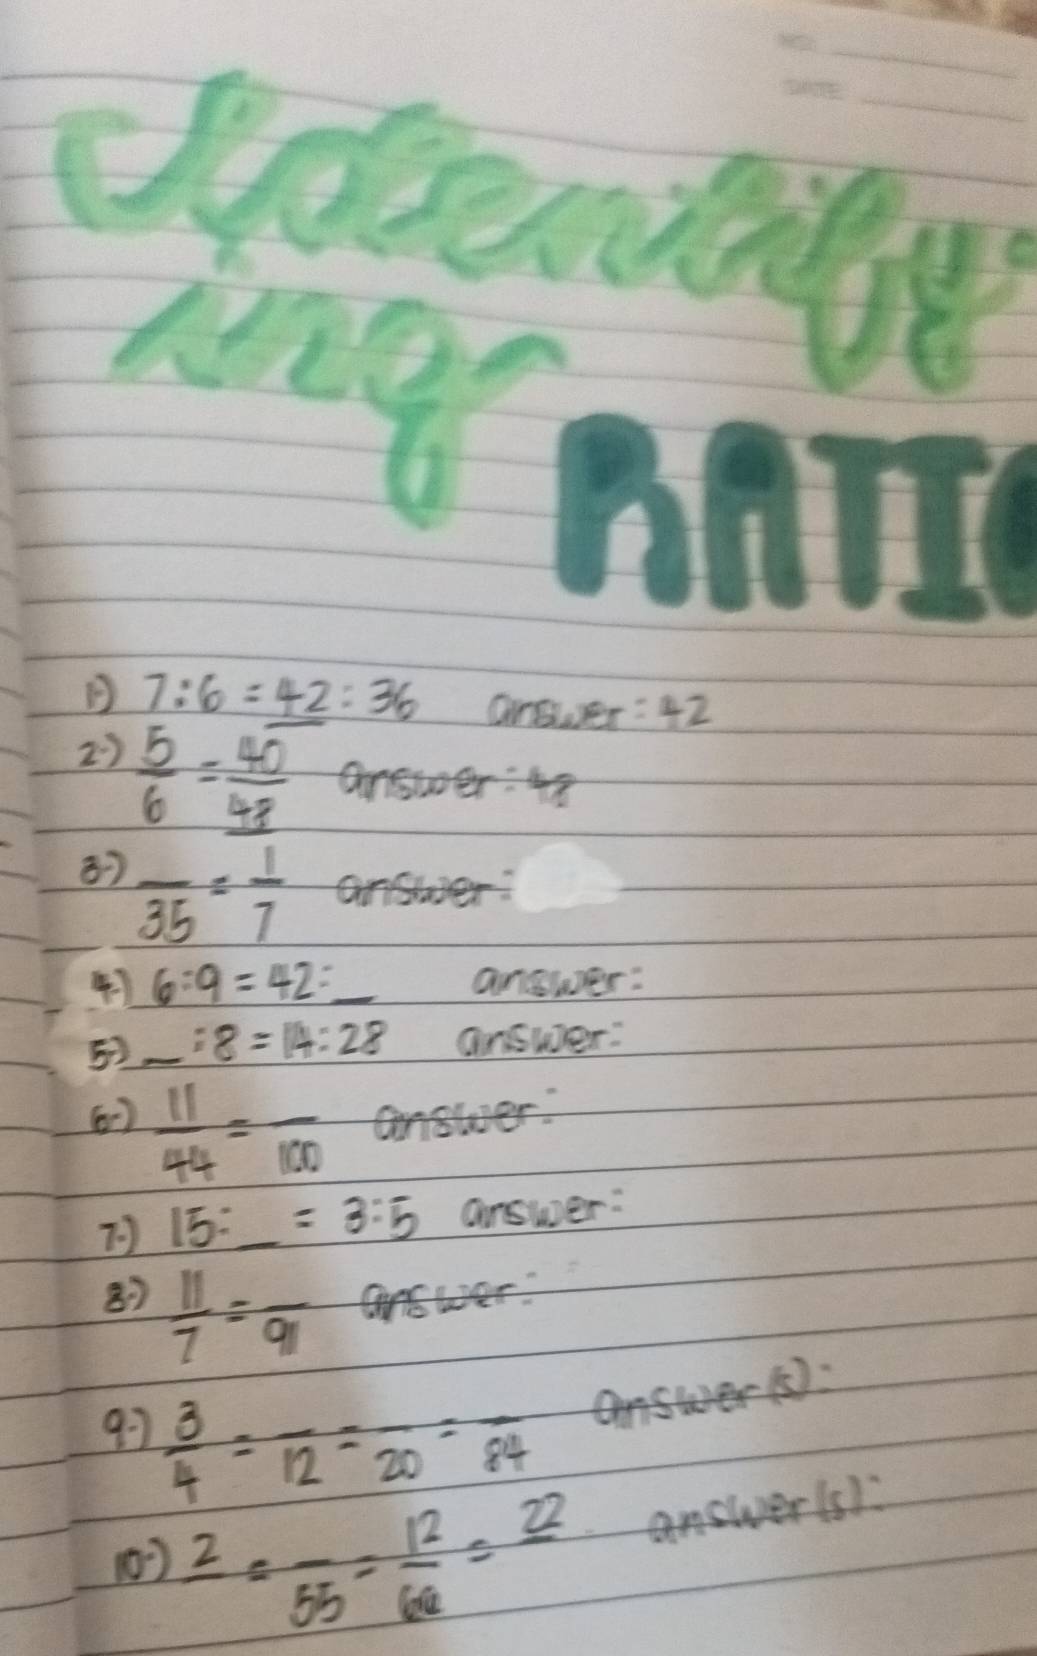 NO.
DATE
Identify-
ing
RATIO
1.) 7:6 = 42:36 answer: 42
2.) 5/6 = 40/48 answer: 48
3.) __/35 = 1/7 answer:
4.) 6:9 = 42:__ answer:
5.) __:8 = 14:28 answer:
6.) 11/44 = __/100 answer:
7.) 15:__ = 3:5 answer:
8.) 11/7 = __/91 answer:
9.) 3/4 = __/12 = __/20 = __/84 answer(s):
10.) 2/__ = __/55 = 12/60 = 22/__ answer(s):